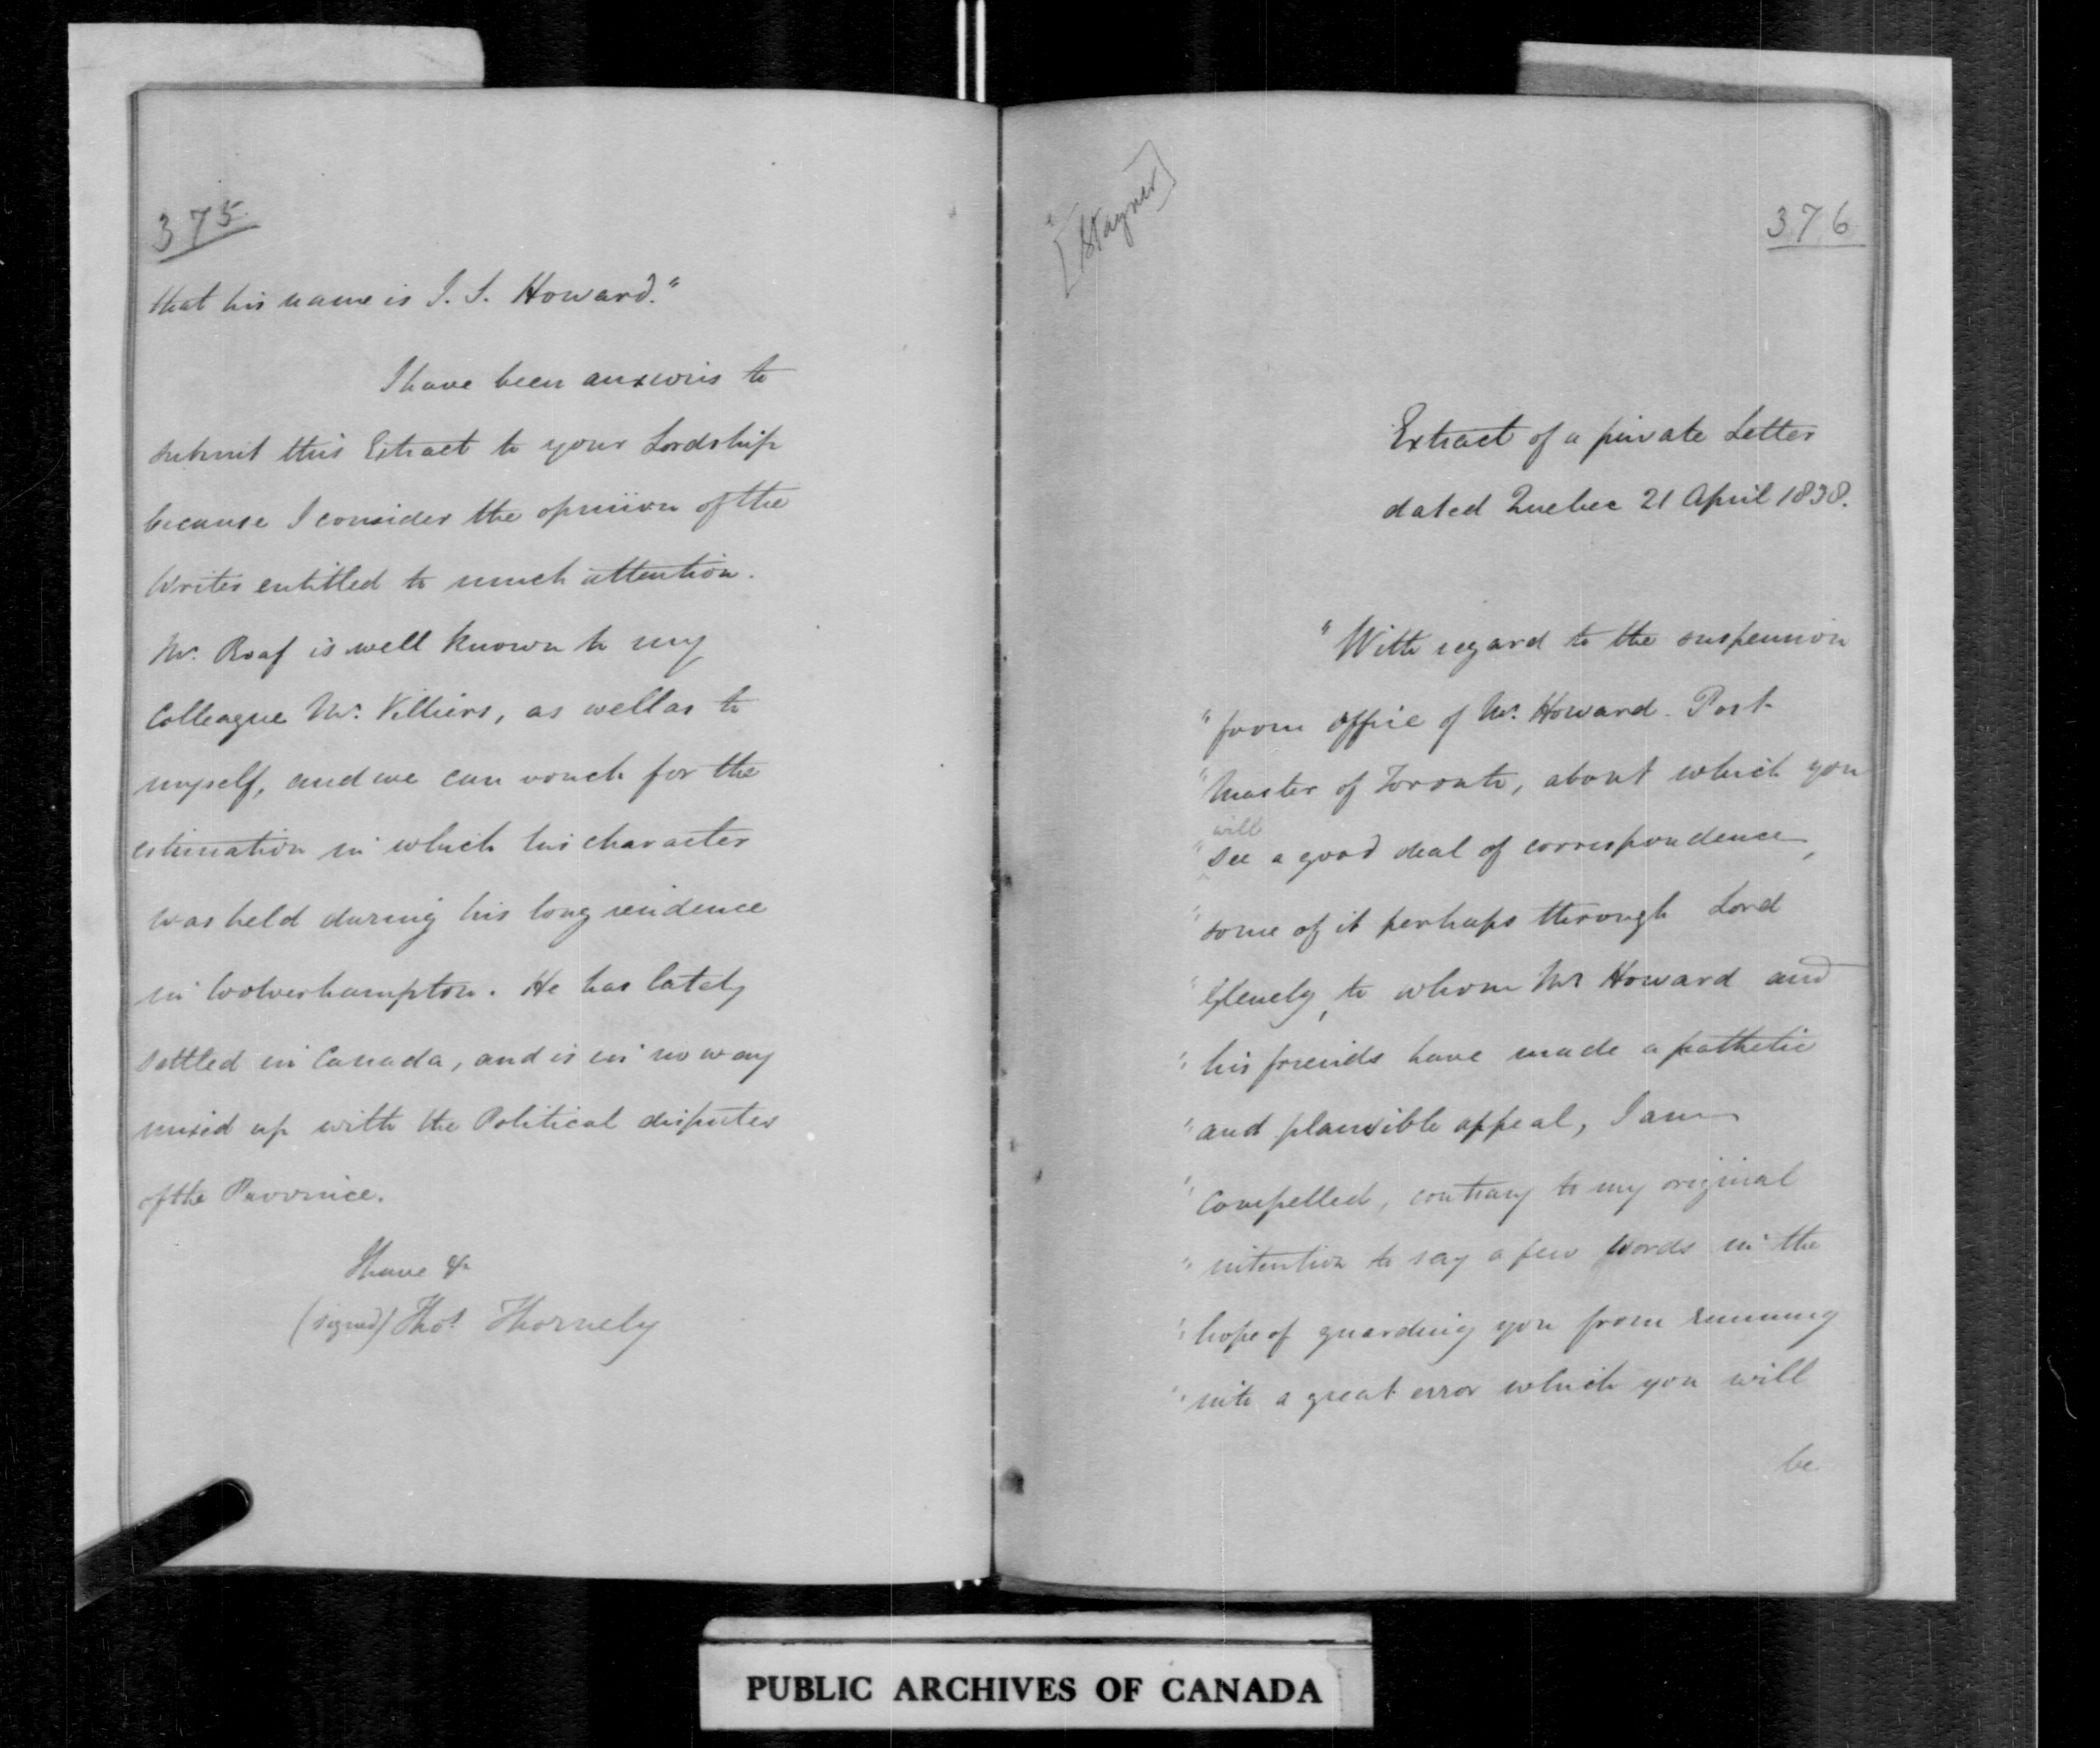 375.
that his name is J. S. Howard."
I have been anxious to
submit this Extract to your Lordship
because I consider the opinion of the
Writer entitled to much attention.
Mr. Roaf is well known to my
Colleague Mr. Villiers, as well as to
myself, and we can vouch for the
estimation in which his character
was held during his long residence
in Wolverhampton. He has lately
settled in Canada, and is in no way
mixed up with the Political disputes
of the Province.
I have &c
(signed) Thos. Thornely
[Stayner]
376
Extract of a private Letter
dated Quebec 21 April 1838.
"With regard to the suspension
"from office of Mr. Howard. Post-
"Master of Toronto, about which you
will
"see a good deal of correspondence,
"some of it perhaps through Lord
"Glenelg, to whom Mr Howard and
"his friends have made a pathetic
"and plausible appeal, I am
"compelled, contrary to my original
"intention to say a few words in the
"hope of guarding you from running
"into a great error which you will
be
PUBLIC ARCHIVES OF CANADA